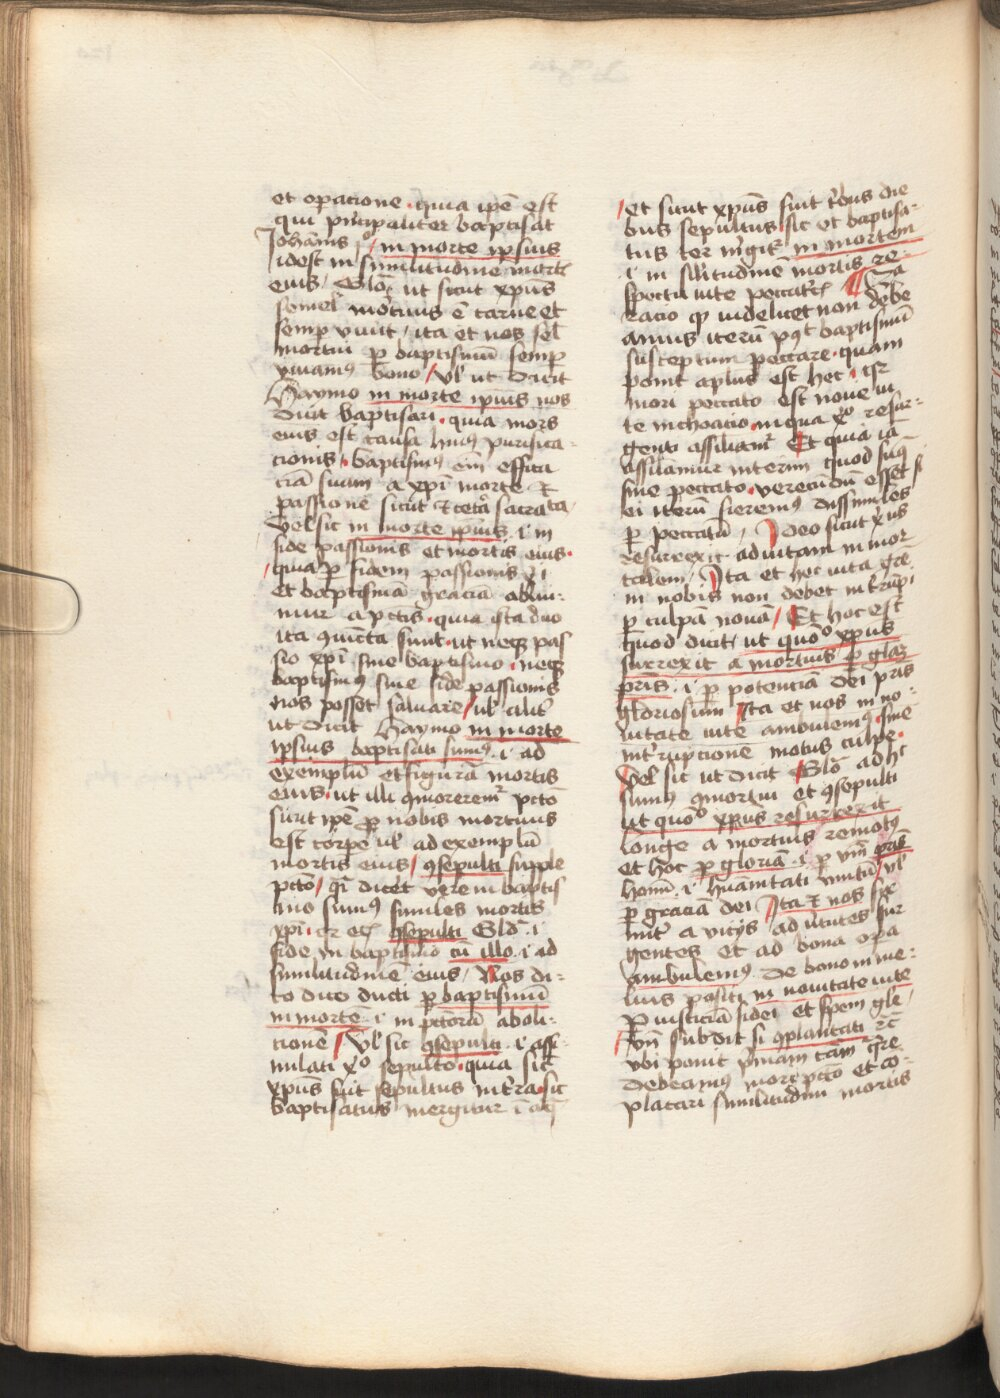 et operacione · quia ipē est
qui pͥncipaliter baptisat
Johanis pͦ / in morte ipsius
idest in similitudinē mortis
eius / Glōͣ ut sicut xp̄us
semel mortuus ē carne et
semper viuit / ita et nos sel̄
mortui ꝑ baptismū semp̄
viuamꝰ bono / vl̄ ut dicit
Haymo in morte ipius nos
dicit baptisari · quia mors
eius est causa huiꝰ purifica-
cionis · baptismꝰ em̄ effica
ciā suam a xp̄i morte et
passione sicut et cetͣa sacrata /
Vel sic in morte ipius · i · in
fide passionis et mortis eius ·
/ quia ꝑ fidem passionis xp̄i
et baptismā graciā ablui-
mur a pctīs · quia ista duo
ita ꝯiūcta sunt · ut neqꝫ pas
sio xp̄i sine baptismo · neqꝫ
baptismꝰ sine fide passionis
nos posset saluare / vl̄ alit̄
ut dicit Haymo in morte
ipsius baptisati sumꝰ · i · ad
exemplū et figurā mortis
eius · ut illi ꝯmoreremͬ pctō
sicut ipē ꝓ nobis mortuus
est corpe vl̄ ad exemplū
mortis eius / ꝯsepulti supple
pctō / qͥ dicet vere in baptis
mo sumꝰ similes mortis
xp̄i · et ꝯsepulti Glōͣ · i ·
fide in baptismo cū illo · i · ad
similitudinē eius / Nos di-
co dico ducti ꝑ baptismū
in mortē · i · in pctōrū aboli-
cionē / Vl̄ sic ꝯsepulti · i · assi
milati xͦ sepulto · quia sic̄
xp̄us fuit sepultus in tr̄a · sic
baptisatus mergitur ī aq̄
/ Et sicut xp̄us fuit tͥbus die
bus sepultus / sic et baptisa-
tus ter mͥgitͬ in mortem
i · in sil̄itudinē mortis re
spectu vite peccatͥcis / Ca
racio qͥ videlicet non debe
amus iterū pꝰt baptismū
susceptum peccare · quam
ponit apl̄us est hec ·
mori peccato est noue vi
te inchoacio in qua xͦ resur-
genti assiliamͬ Et quia iā
assilamur interim quod sumꝰ
sine peccato · verecūdū esset si
ei iterū fieremꝰ dissimiles
ꝑ peccatū / Ideo sicut xp̄us
resurrexit ad vitam in mor
talem / Ita et hec vita gr̄e
in nobis non debet intͬrūpi
ꝑ culpā nouā / Et hoc est
quod dicit / ut quōͦ xp̄us
surrexit a mortuis ꝑ glaꝫ
pr̄is · i · ꝑ potenciā dei pr̄is
gloriosum / Ita et nos in no-
uitate vite ambulemꝰ · sine
intͬrupcione motus culpe ·
/ Vel sic ut dicit Glōͣ ad hͨ
sumꝰ ꝯmortui et ꝯsepulti
ut quōͦ xp̄us resurrexit
longe a mortuis remotꝰ
et hoc ꝑ gloriā · i · ꝑ vim pr̄is
homī · i · hūanitati vnitū / vl̄
ꝑ graciā dei / Ita et nos
 a vicijs ad vͥtutes sur
gentes et ad bona opa
ambulemꝰ · De bono in me-
lius positi in nouitate vite
ꝑ iusticiā fidei et spem gl̄e /
/ vn̄ subdit si ꝯplantati etc̄
vbi ponit pͥmam cām qͣre
debeamꝰ mori pctō et co-
plātari similitudini mortis